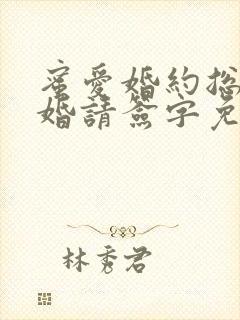 蜜愛婚約總
婚請簽字免
林秀君